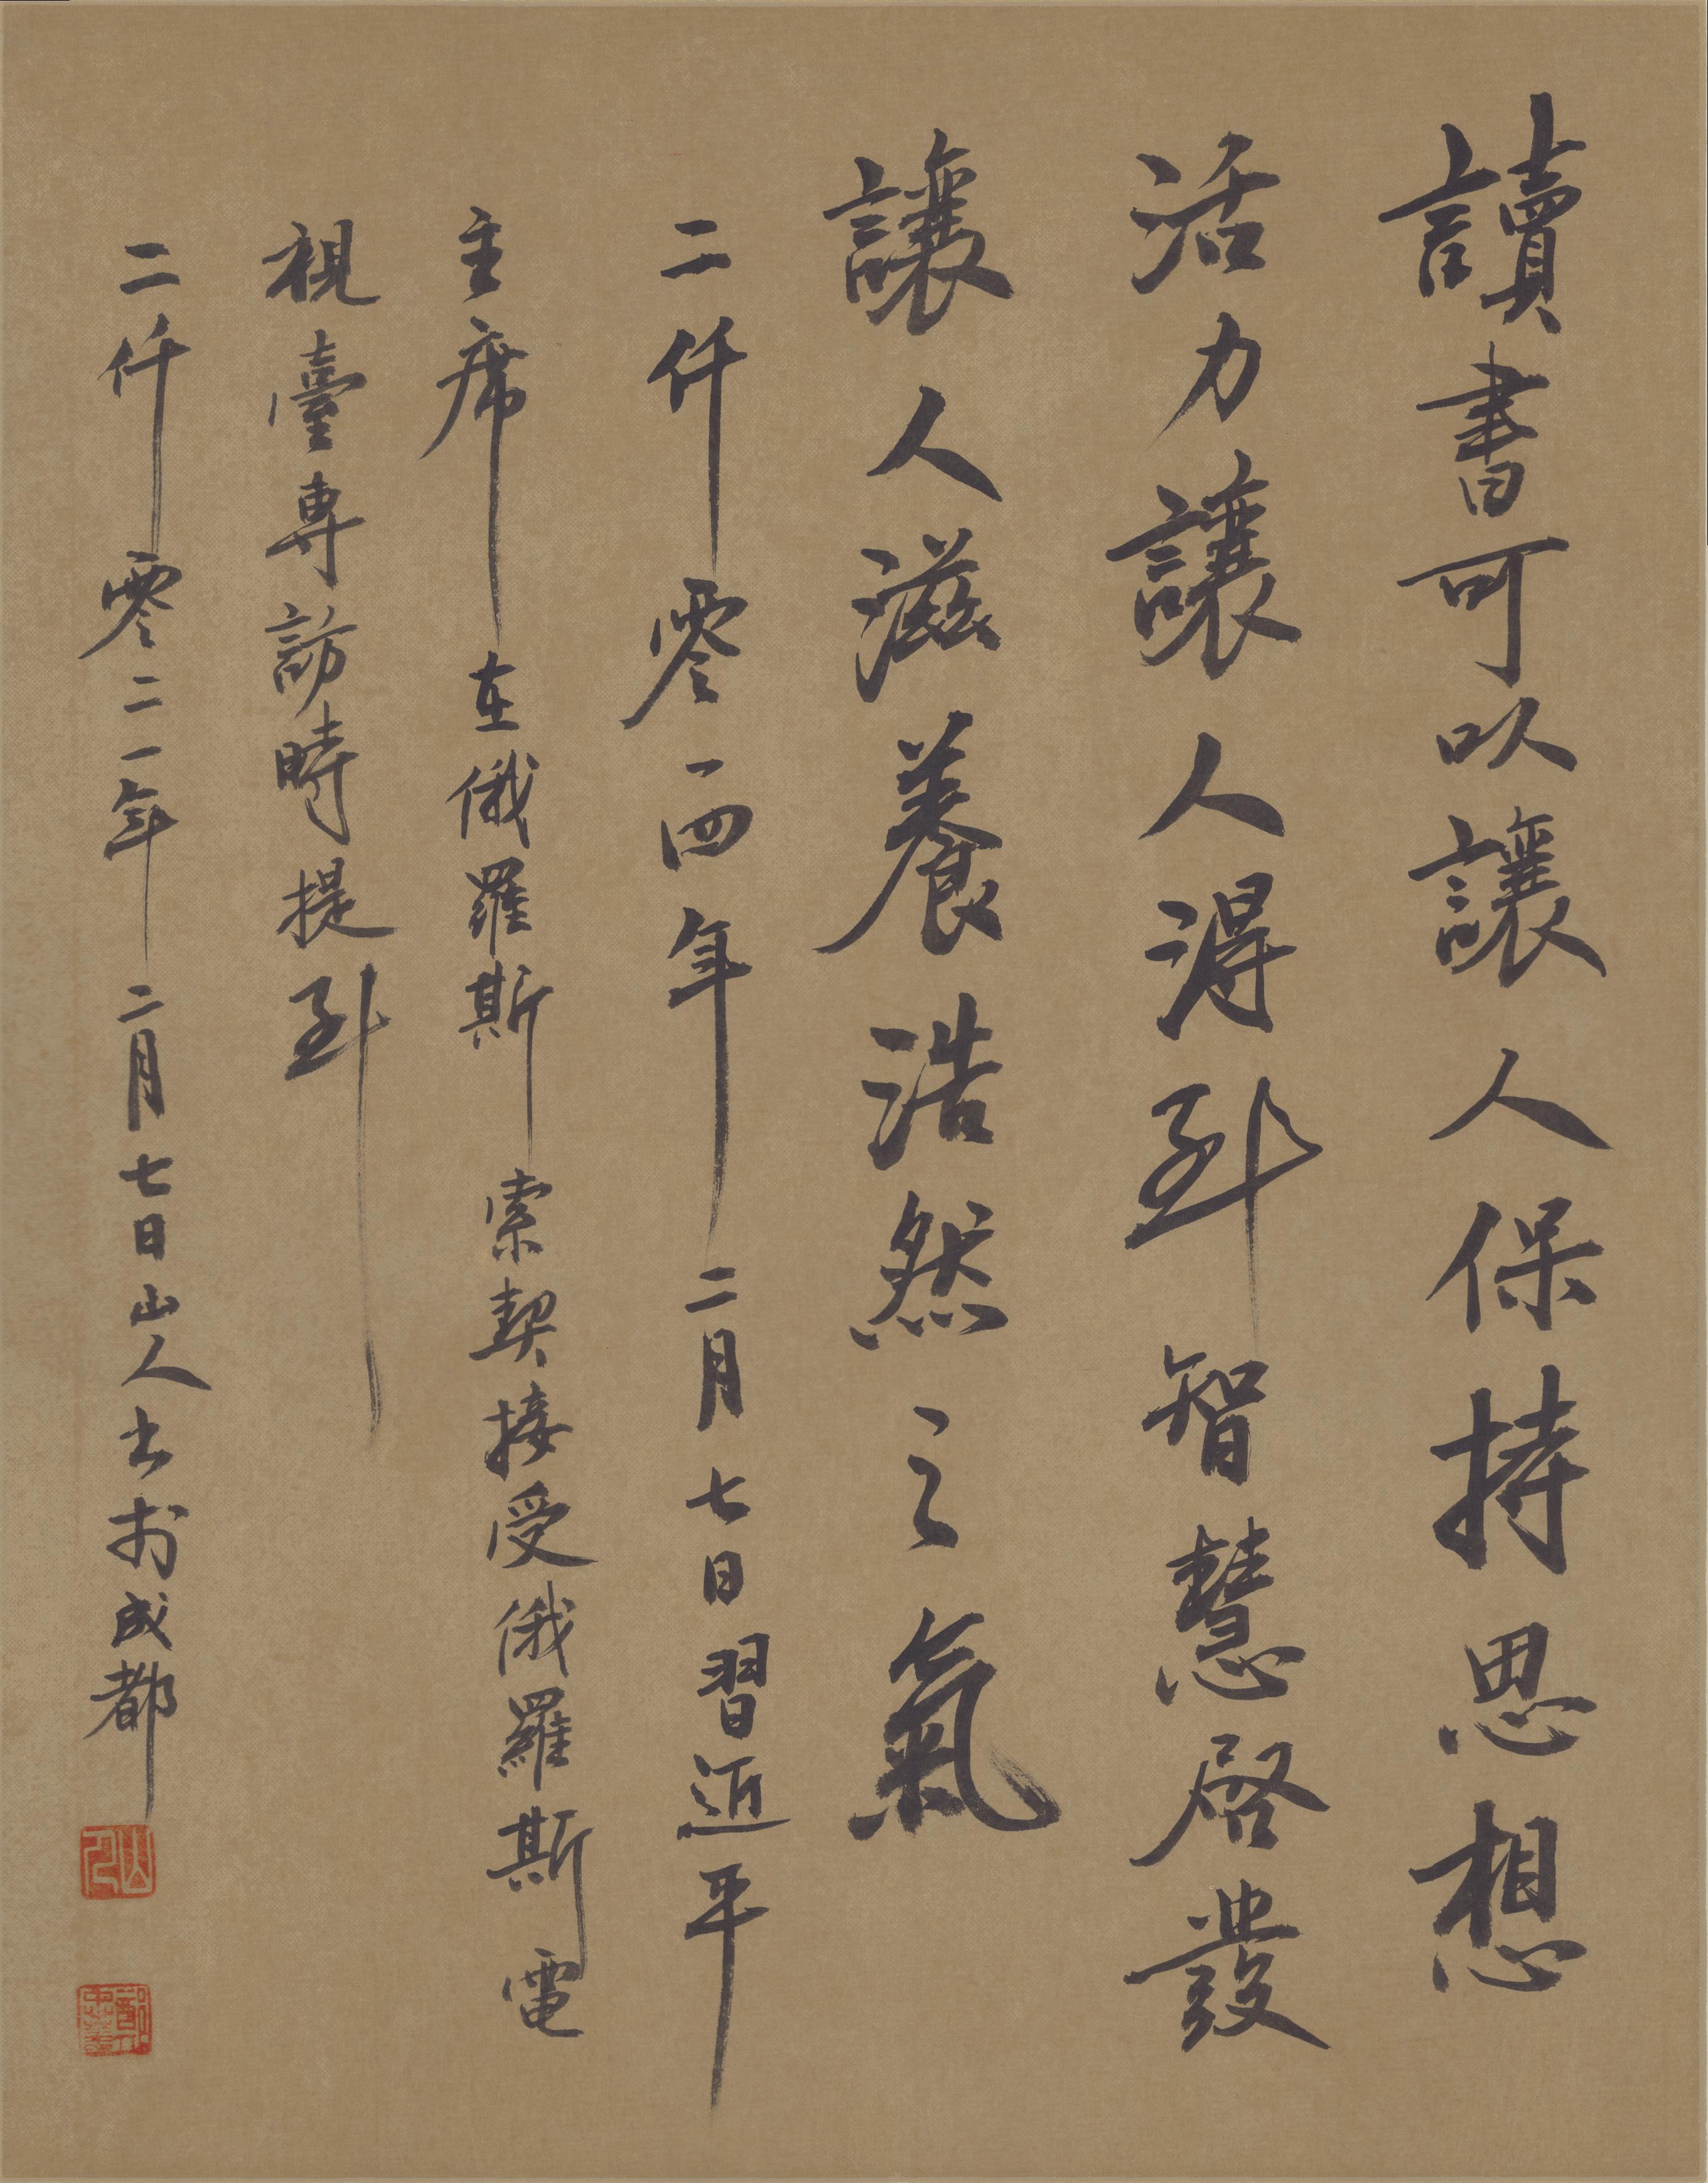 讀書可以讓人保持思想
活力讓人得到智慧啓發
讓人滋養浩然之氣
二仟零一四年二月七日習近平
主席在俄羅斯索契接受俄羅斯電
視臺專訪時提到
二仟零二一年二月七日山人书於成都
山人